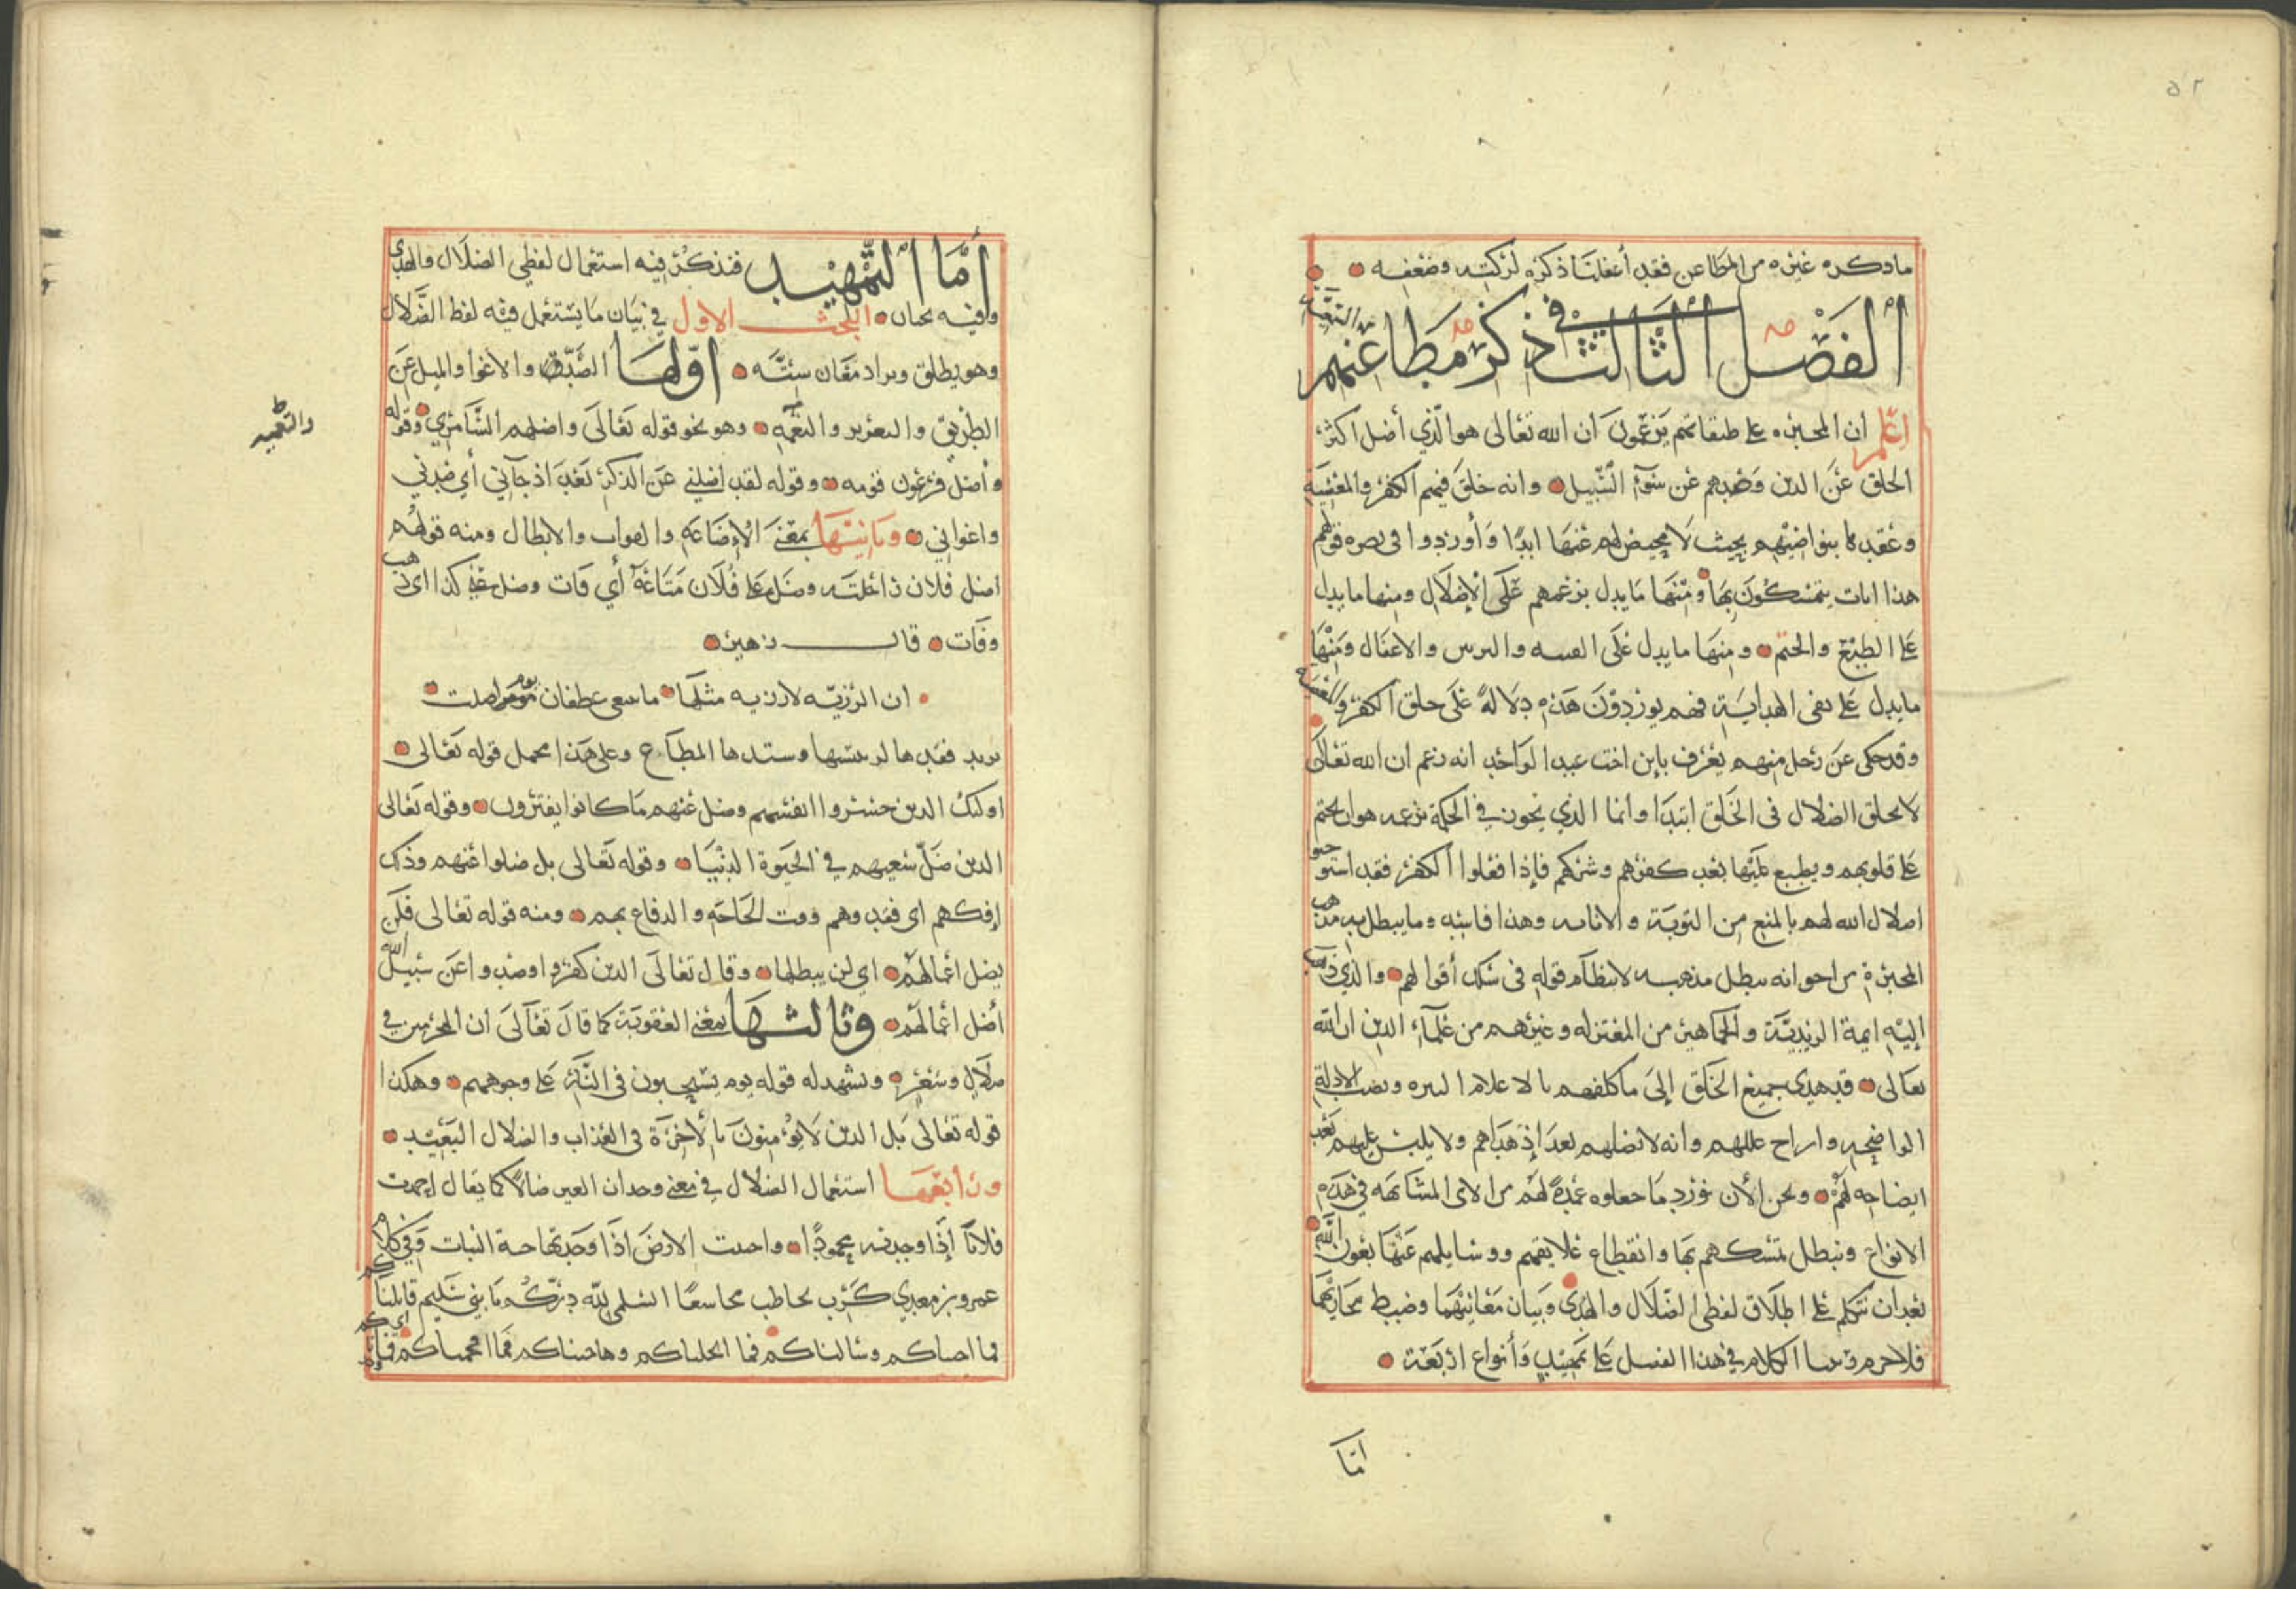 ٥٢
ما ذكره غيره من المطاعن فقد أغفلنا ذكره لركته وضعفه
الفصل الثالث في ذكر مطاعنهم من الشبه
اعلم ان المجبره على طبقاتهم يزعمون ان الله تعالى هو الذي أضل اكثر
الخلق عن الدين وصدهم عن سوآء السبيل وانه خلق فيهم الكفر والمعصية
وعقدها بنواصيهم بحيث لا محيص لهم عنها ابدًا وأوردوا في نصره قولهم
هذا ايات يتمسكون بها ومنها ما يدل بزعمهم على الإضلال ومنها ما يدل
على الطبع والختم ومنها ما يدل على الفتنه واللبس والاغفال ومنها
ما يدل على نفى الهداية فهم يوردون هذه دلالةً على خلق الكفر والمعصيه
وقد حكى عن رجل منهم يعرف بابن اخت عبد الواحد انه زعم ان الله تعالى
لا يخلق الضلال فى الخلق ابتدًا وانما الذي يحوز في الحكمة بزعمه هو ان يختم
على قلوبهم ويطبع عليها بعد كفرهم وشركهم فإذا فعلوا الكفر فقد استوجبو
اضلال الله لهم بالمنع من التوبة والانابه وهذا فاسد وما يبطل به مذهب
المجبرة من اخوانه يبطل مذهبه لانتظام قوله فى سلك أقوالهم والذي ذهب
إليه ايمة الزيدية والجماهير من المعتزله وغيرهم من علمآء الدين ان الله
تعالى قد هدى جميع الخلق إلى ما كلفهم بالاعلام النيره ونصب الادلة
الواضحه وازاح عللهم وانه لا يضلهم بعد إذ هداهم ولا يلبس عليهم بعد
ايضاحه لهم ونحن الأن نورد ما جعلوه عمدةً لهم من الاى المتشابهه في هذه
الانواع ونبطل تمسكهم بها وانقطاع علايقهم ووسايلهم عنها بعون الله
بعد ان نتكلم على اطلاق لفظى الضلال والهدى وبيان معانيهما وضبط مجاريهما
فلا جرم رتبنا الكلام في هذا الفصل على تمهيد وأنواع اربعة
اما
أما التمهيد فنذكر فيه استعمال لفظي الضلال والهدى
وفيه بحثان البحث الاول في بيان ما يستعمل فيه لفظ الضلال
وهو يطلق ويراد معان ستة اولها الصد والاغوا والميل عن
الطريق والتعزير والتعميه وهو نحو قوله تعالى واضلهم السامري وقوله
وأضل فرعون قومه وقوله لقد اضلني عن الذكر بعد اذ جآني أي صدني
واغواني وثانيها بمعنى الإضاعة والفوات والابطال ومنه قولهم
اضل فلان ناقته وضل على فلان متاعه أي فات وضل عنه كذا اى ذهب
وفات قال زهير
ان الرزية لا رزية مثلها ما تبتغى غطفان يوم اضلت
يريد فقدها وعلى هذا يحمل قوله تعالى
اولئك الذين خسروا انفسهم وضل عنهم ما كانوا يفترون وقوله تعالى
الذين ضل سعيهم في الحيوة الدنيا وقوله تعالى بل ضلوا عنهم وذلك
إفكهم اى فقدوهم وقت الحاجه والدفاع بهم ومنه قوله تعالى فلن
يضل اعمالهم اي لن يبطلها وقال تعالى الذين كفروا وصدوا عن سبيل الله
أضل اعمالهم وثالثها بمعنى العقوبة كما قال تعالى ان المجرمين في
ضلال وسعر ويشهد له قوله يوم يسحبون فى النار على وجوههم وهكذا
قوله تعالى بل الذين لا يؤمنون بالأخرة في العذاب والضلال البعيد
ورابعها استعمال الضلال في معنى وجدان الغير ضالا كما يقال احمدت
فلانا إذا وجدته محمودًا واحمدت الارض اذا وجدتها النبات وفي كلام
عمرو بن معدي كرب يخاطب مجاشعًا السلمى لله دركم يا بني سليم قاتلناكم
فما اجبناكم وسالناكم فما ابخلناكم وهاجيناكم فما افحمناكم
والتعميه